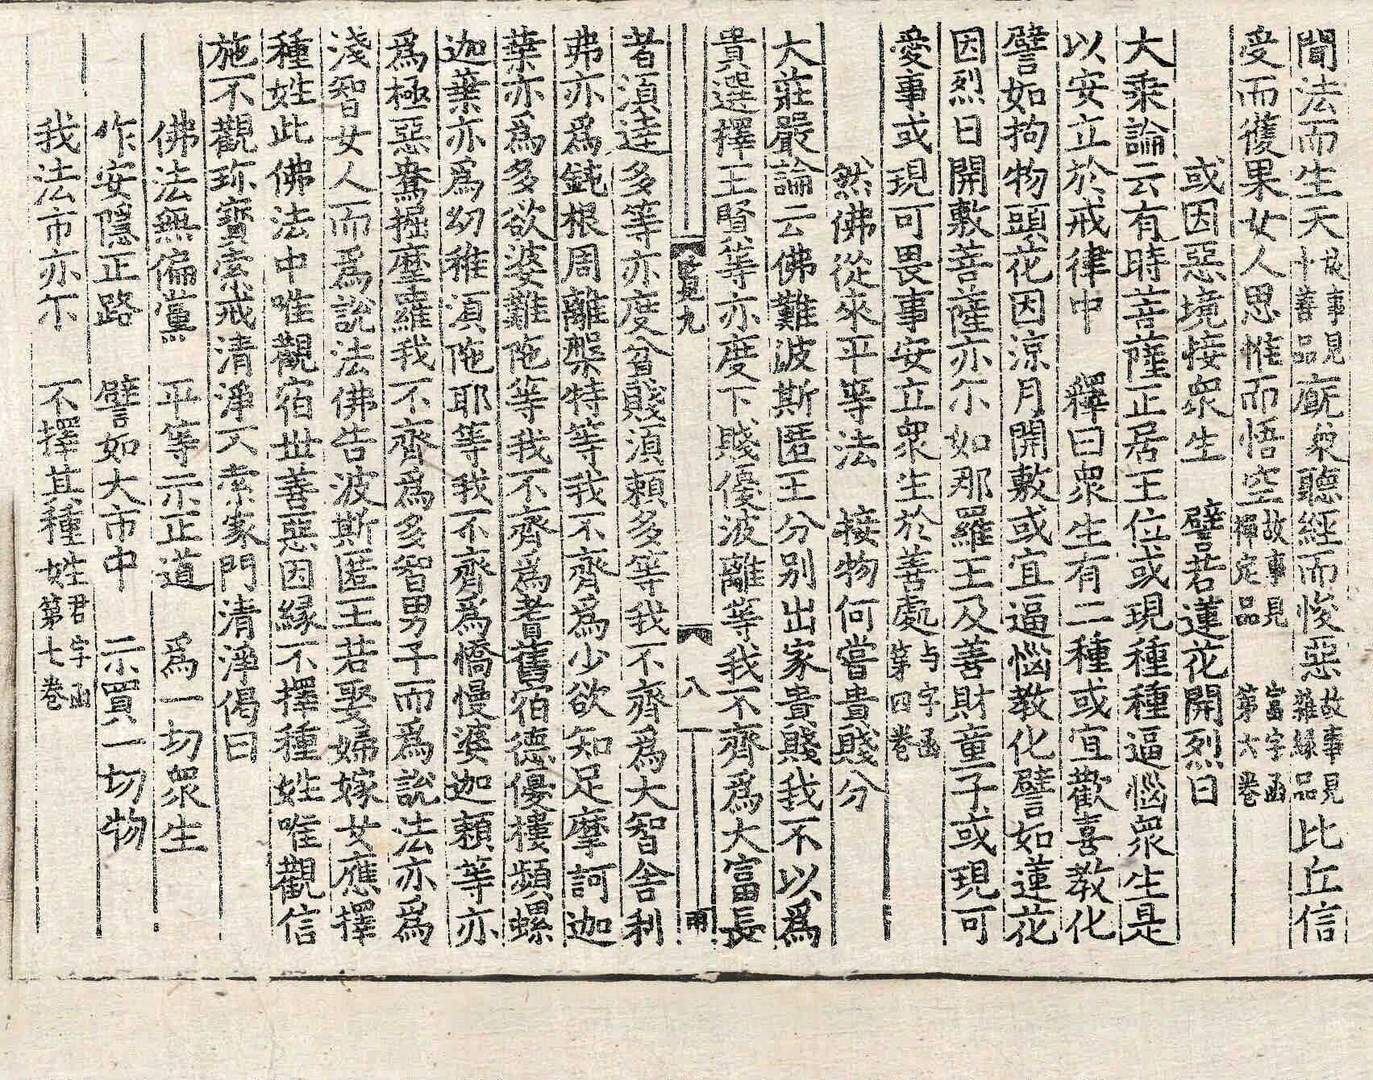 聞法而生天故事見十善品廐象聽經而悛惡故事見雜緣品比丘信
受而獲果女人思惟而悟空故事見禪定品富字函第六卷
或因惡境接衆生　譬若蓮花開烈日
大乘論云有時菩薩正居王位或現種種逼惱衆生是
以安立於戒律中　釋曰衆生有二種或宜歡喜教化
譬如拘物頭花因涼月開敷或宜逼惱教化譬如蓮花
因烈日開敷菩薩亦尒如那羅王及善財童子或現可
愛事或現可畏事安立衆生於善處与字函第四卷
然佛從來平等法　接物何嘗貴賤分
大莊嚴論云佛難波斯匿王分別出家貴賤我不以爲
貴選擇王賢等亦度下賤優波離等我不齊爲大富長
覧九　八　雨
者湏逹多等亦度貧賤湏賴多等我不齊爲大智舍利
弗亦爲鈍根周離槃特等我不齊爲少欲知足摩訶迦
葉亦爲多欲婆難陁等我不齊爲耆舊宿德優樓頻螺
迦葉亦爲幼稚湏陁耶等我不齊爲憍慢婆迦賴等亦
爲極惡鴦掘摩羅我不齊爲多智男子而爲說法亦爲
淺智女人而爲說法佛告波斯匿王若娶婦嫁女應擇
種姓此佛法中唯觀宿世善惡因緣不擇種姓唯觀信
施不觀珎寶索戒清淨不索家門清淨偈曰
佛法無偏黨　平等示正道　爲一切衆生
作安隱正路　譬如大市中　示買一切物
我法市亦尒　不擇其種姓君字函第七卷